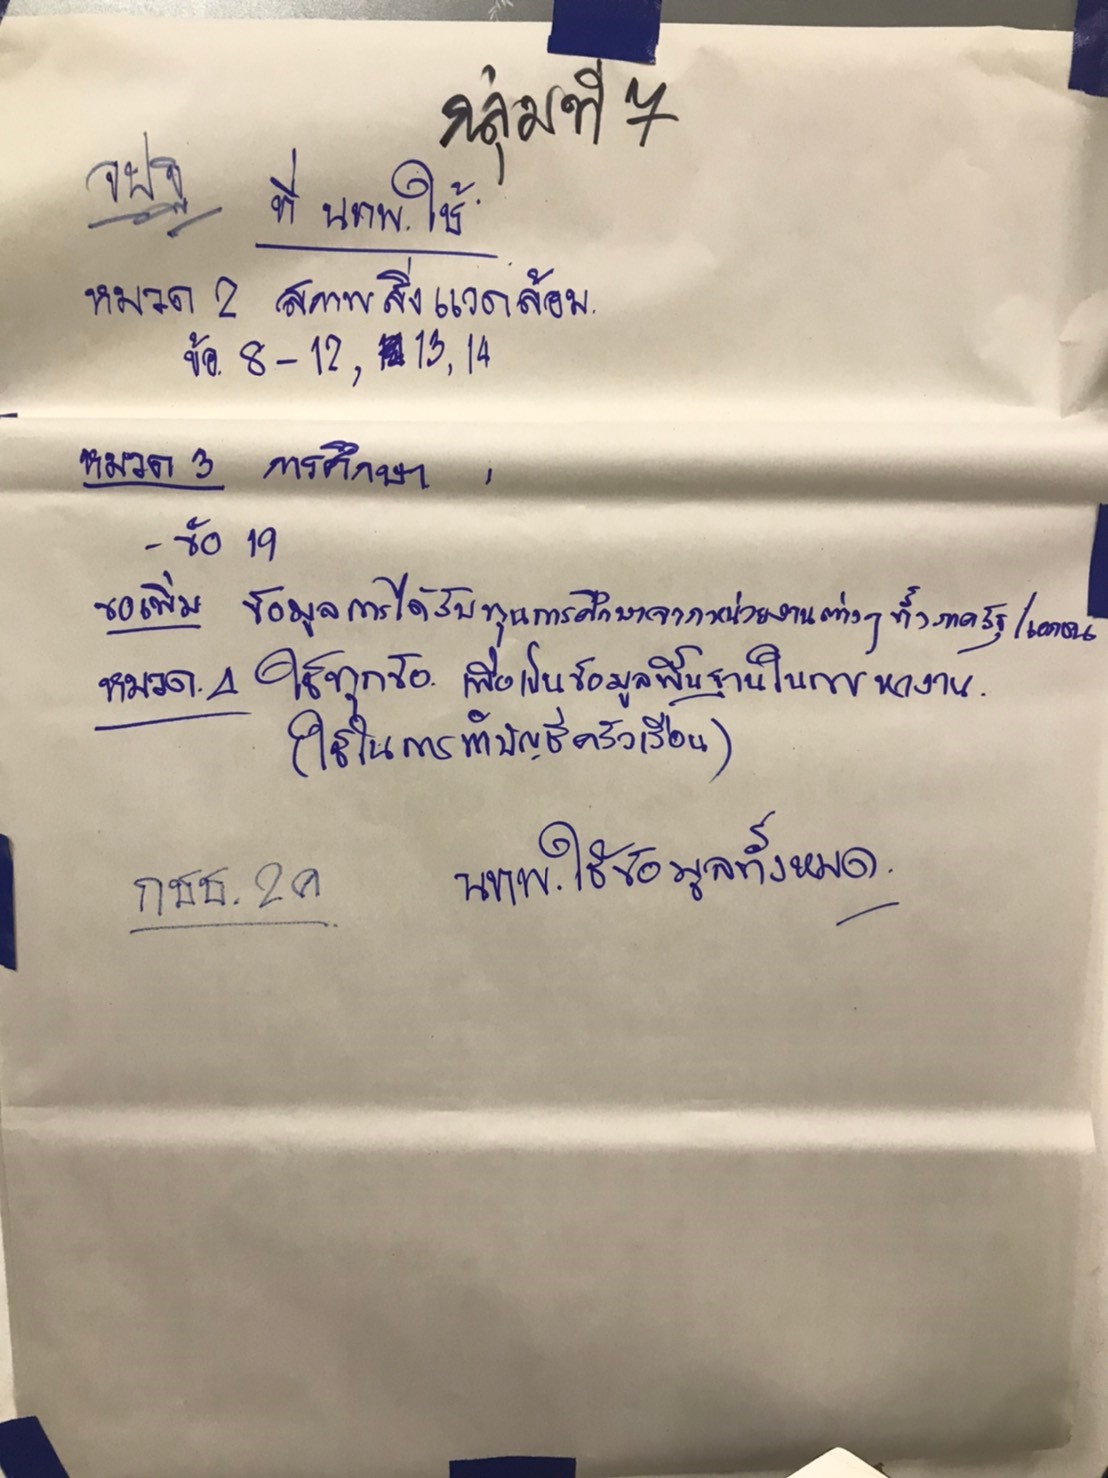 กลุ่มที่ 7
จปฐ ที่ นทพ. ใช้
หมวด 2 สภาพสิ่งแวดล้อม.
ข้อ. 8 - 12, 13, 14
หมวด 3 การศึกษา
- ข้อ 19
ขอเพิ่ม ข้อมูลการได้รับทุนการศึกษาจากหน่วยงานต่างๆ ทั้งภาครัฐ/เอกชน
หมวด. 4 ใช้ทุกข้อ. เพื่อเป็นข้อมูลพื้นฐานใน งาน.
(ใช้ในการทำบัญชีครัวเรือน)
กชช. 2ค นทพ. ใช้ข้อมูลทั้งหมด.